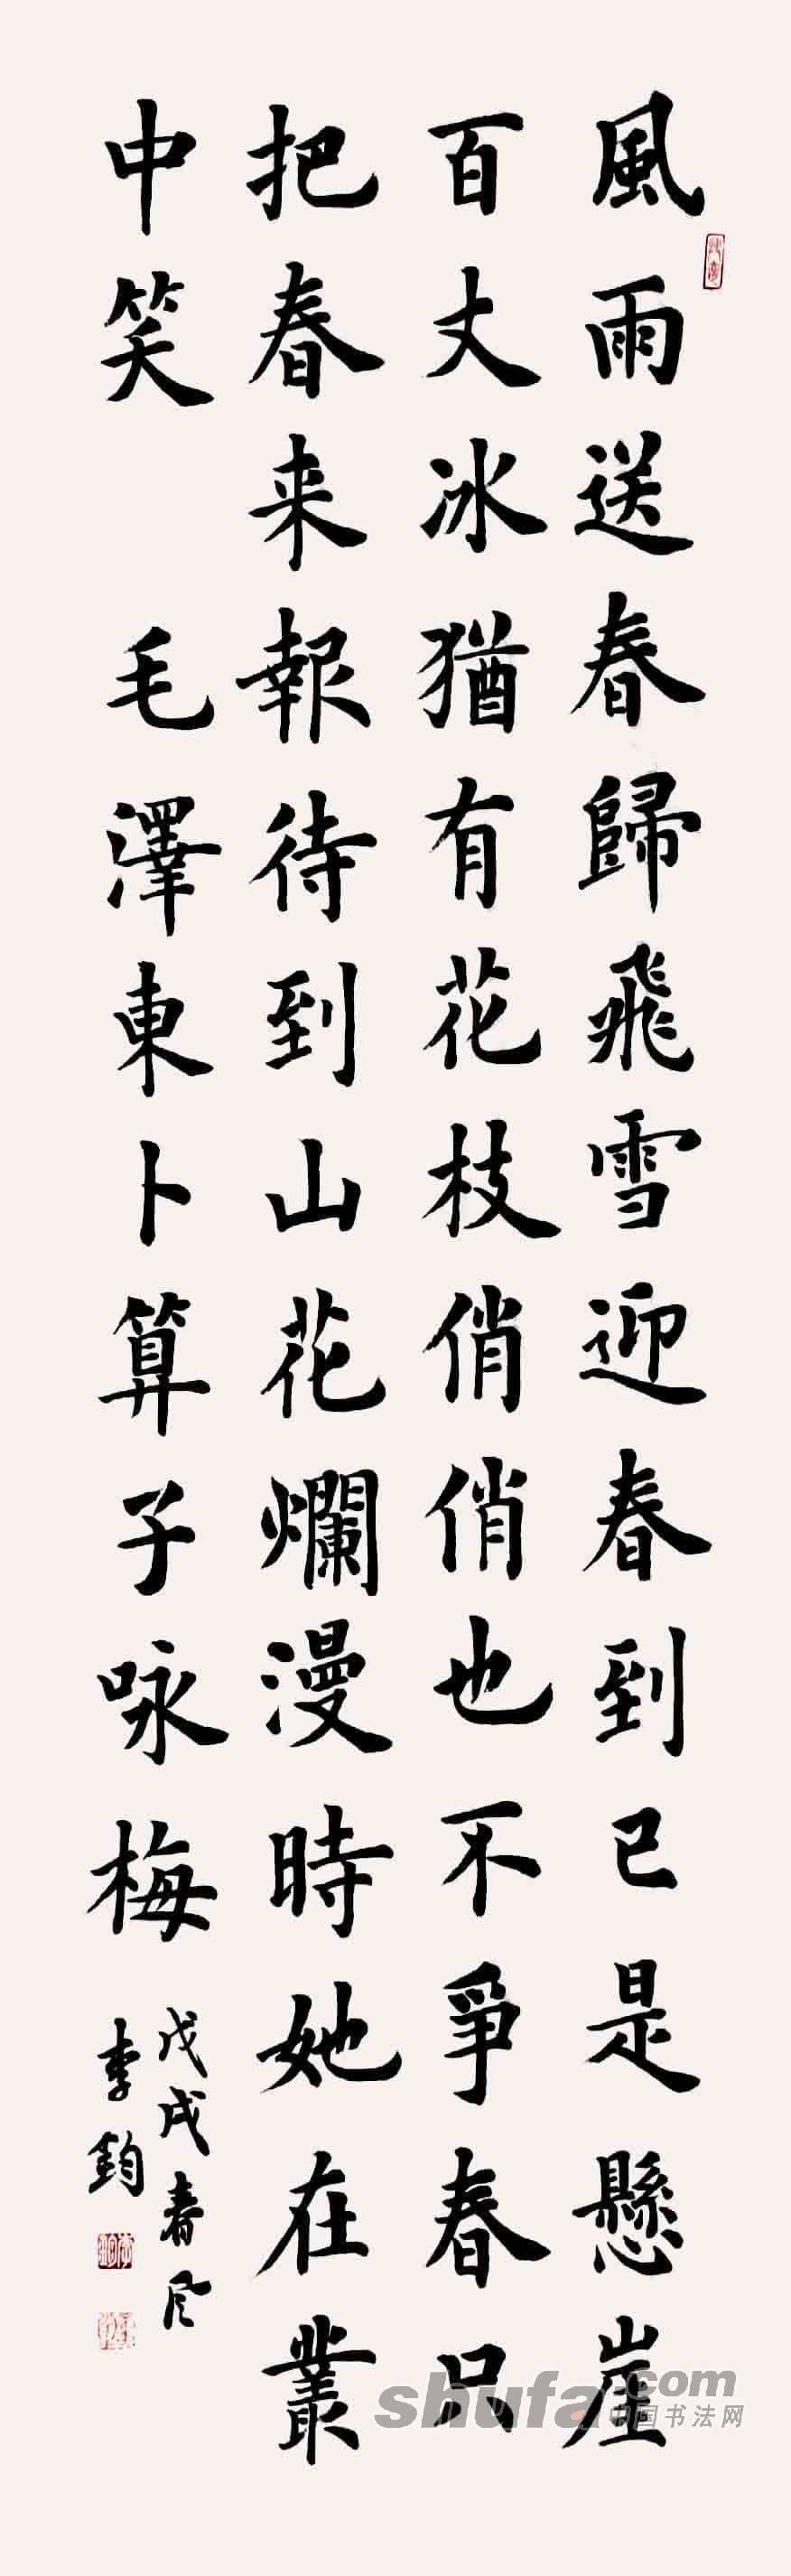 風雨送春歸飛雪迎春到已是懸崖
百丈冰猶有花枝俏俏也不爭春只
把春來報待到山花爛漫時她在叢
中笑 毛澤東卜算子咏梅
戊戌春月
李鈞
shufa.com
中国书法网